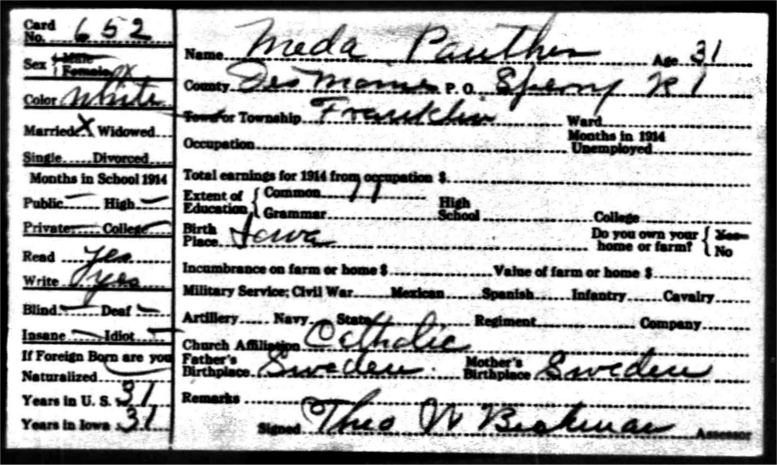 Card No. 652
Sex Male Female X
Color White
Married X Widowed
Single Divorced
Months in School 1914
Public — High —
Private — College —
Read Yes
Write Yes
Blind — Deaf —
Insane — Idiot —
If Foreign Born are you
Naturalized
Years in U. S. 31
Years in Iowa 31
Name Meda Panther Age 31
County Des Moines P. O. Sperry R 1
Town or Township Franklin Ward
Months in 1914
Occupation Unemployed
Total earnings for 1914 from occupation $
Extent of Education { Common 11 High School
Grammar College
Birth Place Iowa Do you own your home or farm? { Yes No
Incumbrance on farm or home $ Value of farm or home $
Military Service; Civil War Mexican Spanish Infantry Cavalry
Artillery Navy State Regiment Company
Church Affiliation Catholic
Father's Birthplace Sweden Mother's Birthplace Sweden
Remarks
Signed Theo W Assessor